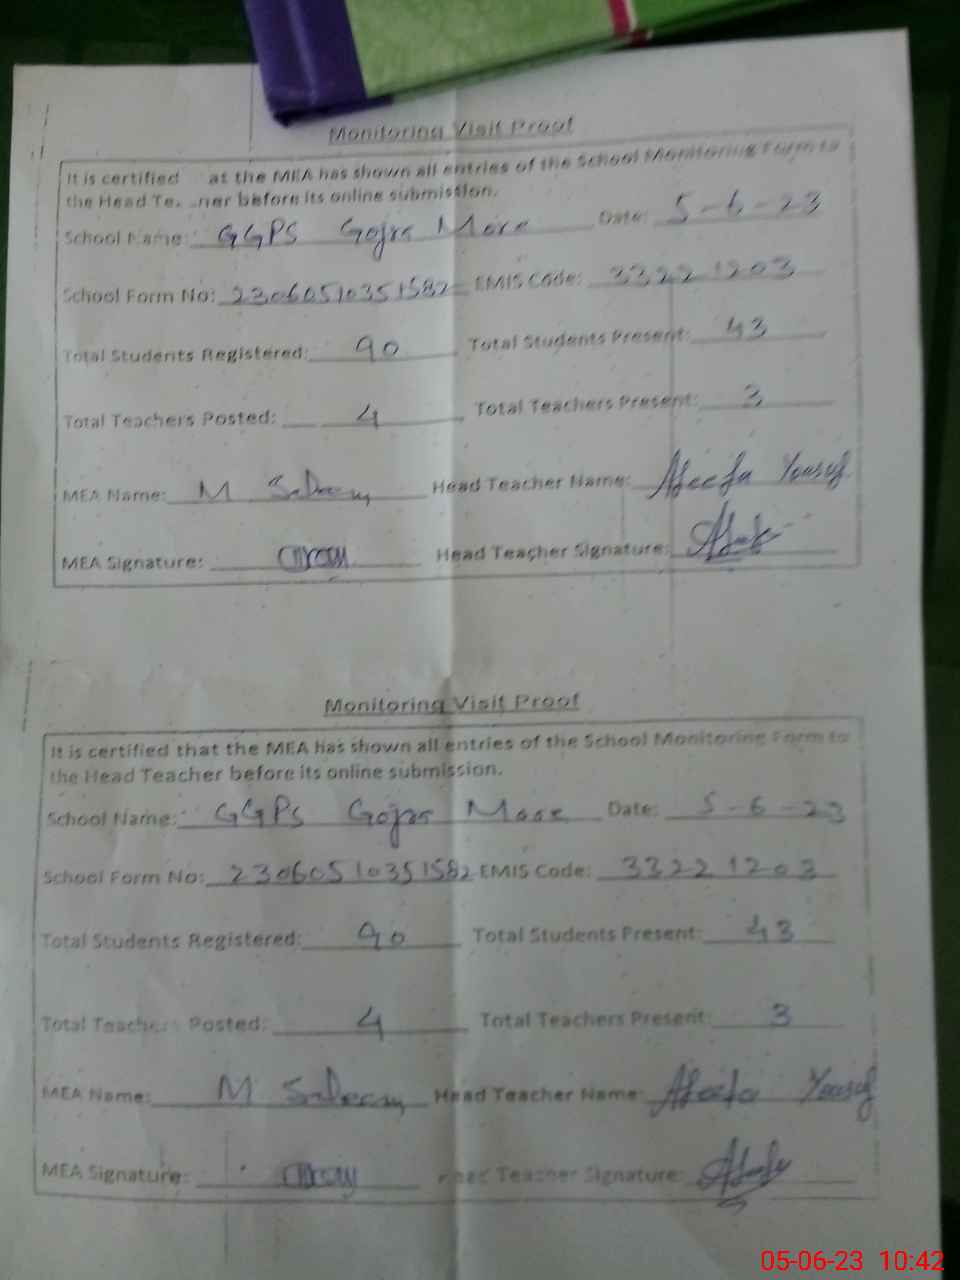 Monitoring Visit Proof
It is certified at the MEA has shown all entries of the School Monitoring Form to
the Head Te. .ner before its online submission.
School Name: GGPS Gojra More Date: 5-6-23
School Form No: 23060510351582 EMIS Code: 33221203
Total Students Registered: 90 Total Students Present: 43
Total Teachers Posted: 4 Total Teachers Present: 3
MEA Name: M Saleem Head Teacher Name: Afeefa Yousuf
MEA Signature: Head Teacher Signature:
Monitoring Visit Proof
It is certified that the MEA has shown all entries of the School Monitoring Form to
the Head Teacher before its online submission.
School Name: GGPS Gojra More Date: 5-6-23
School Form No: 23060510351582 EMIS Code: 33221203
Total Students Registered: 90 Total Students Present: 43
Total Teachers Posted: 4 Total Teachers Present: 3
MEA Name: M Saleem Head Teacher Name: Afeefa Yousuf
MEA Signature: Teacher Signature:
05-06-23 10:42